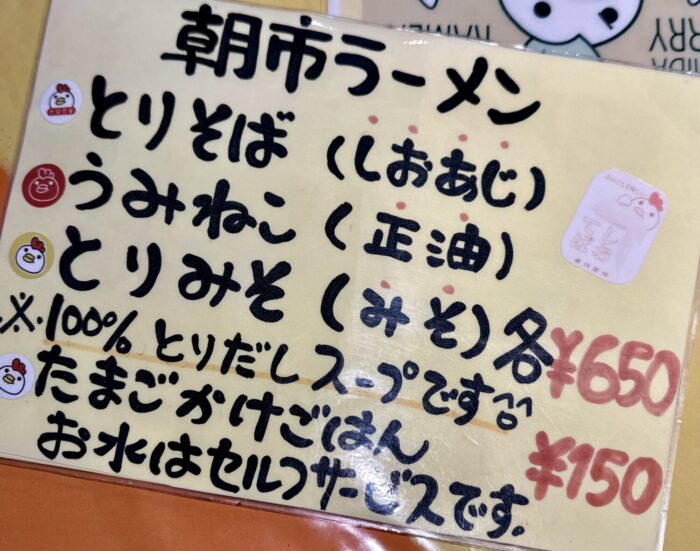 朝市ラーメン
とりそば (しおあじ)
うみねこ (正油)
とりみそ (みそ) 各¥650
※100%とりだしスープです^^
たまごかけごはん ¥150
お水はセルフサービスです.